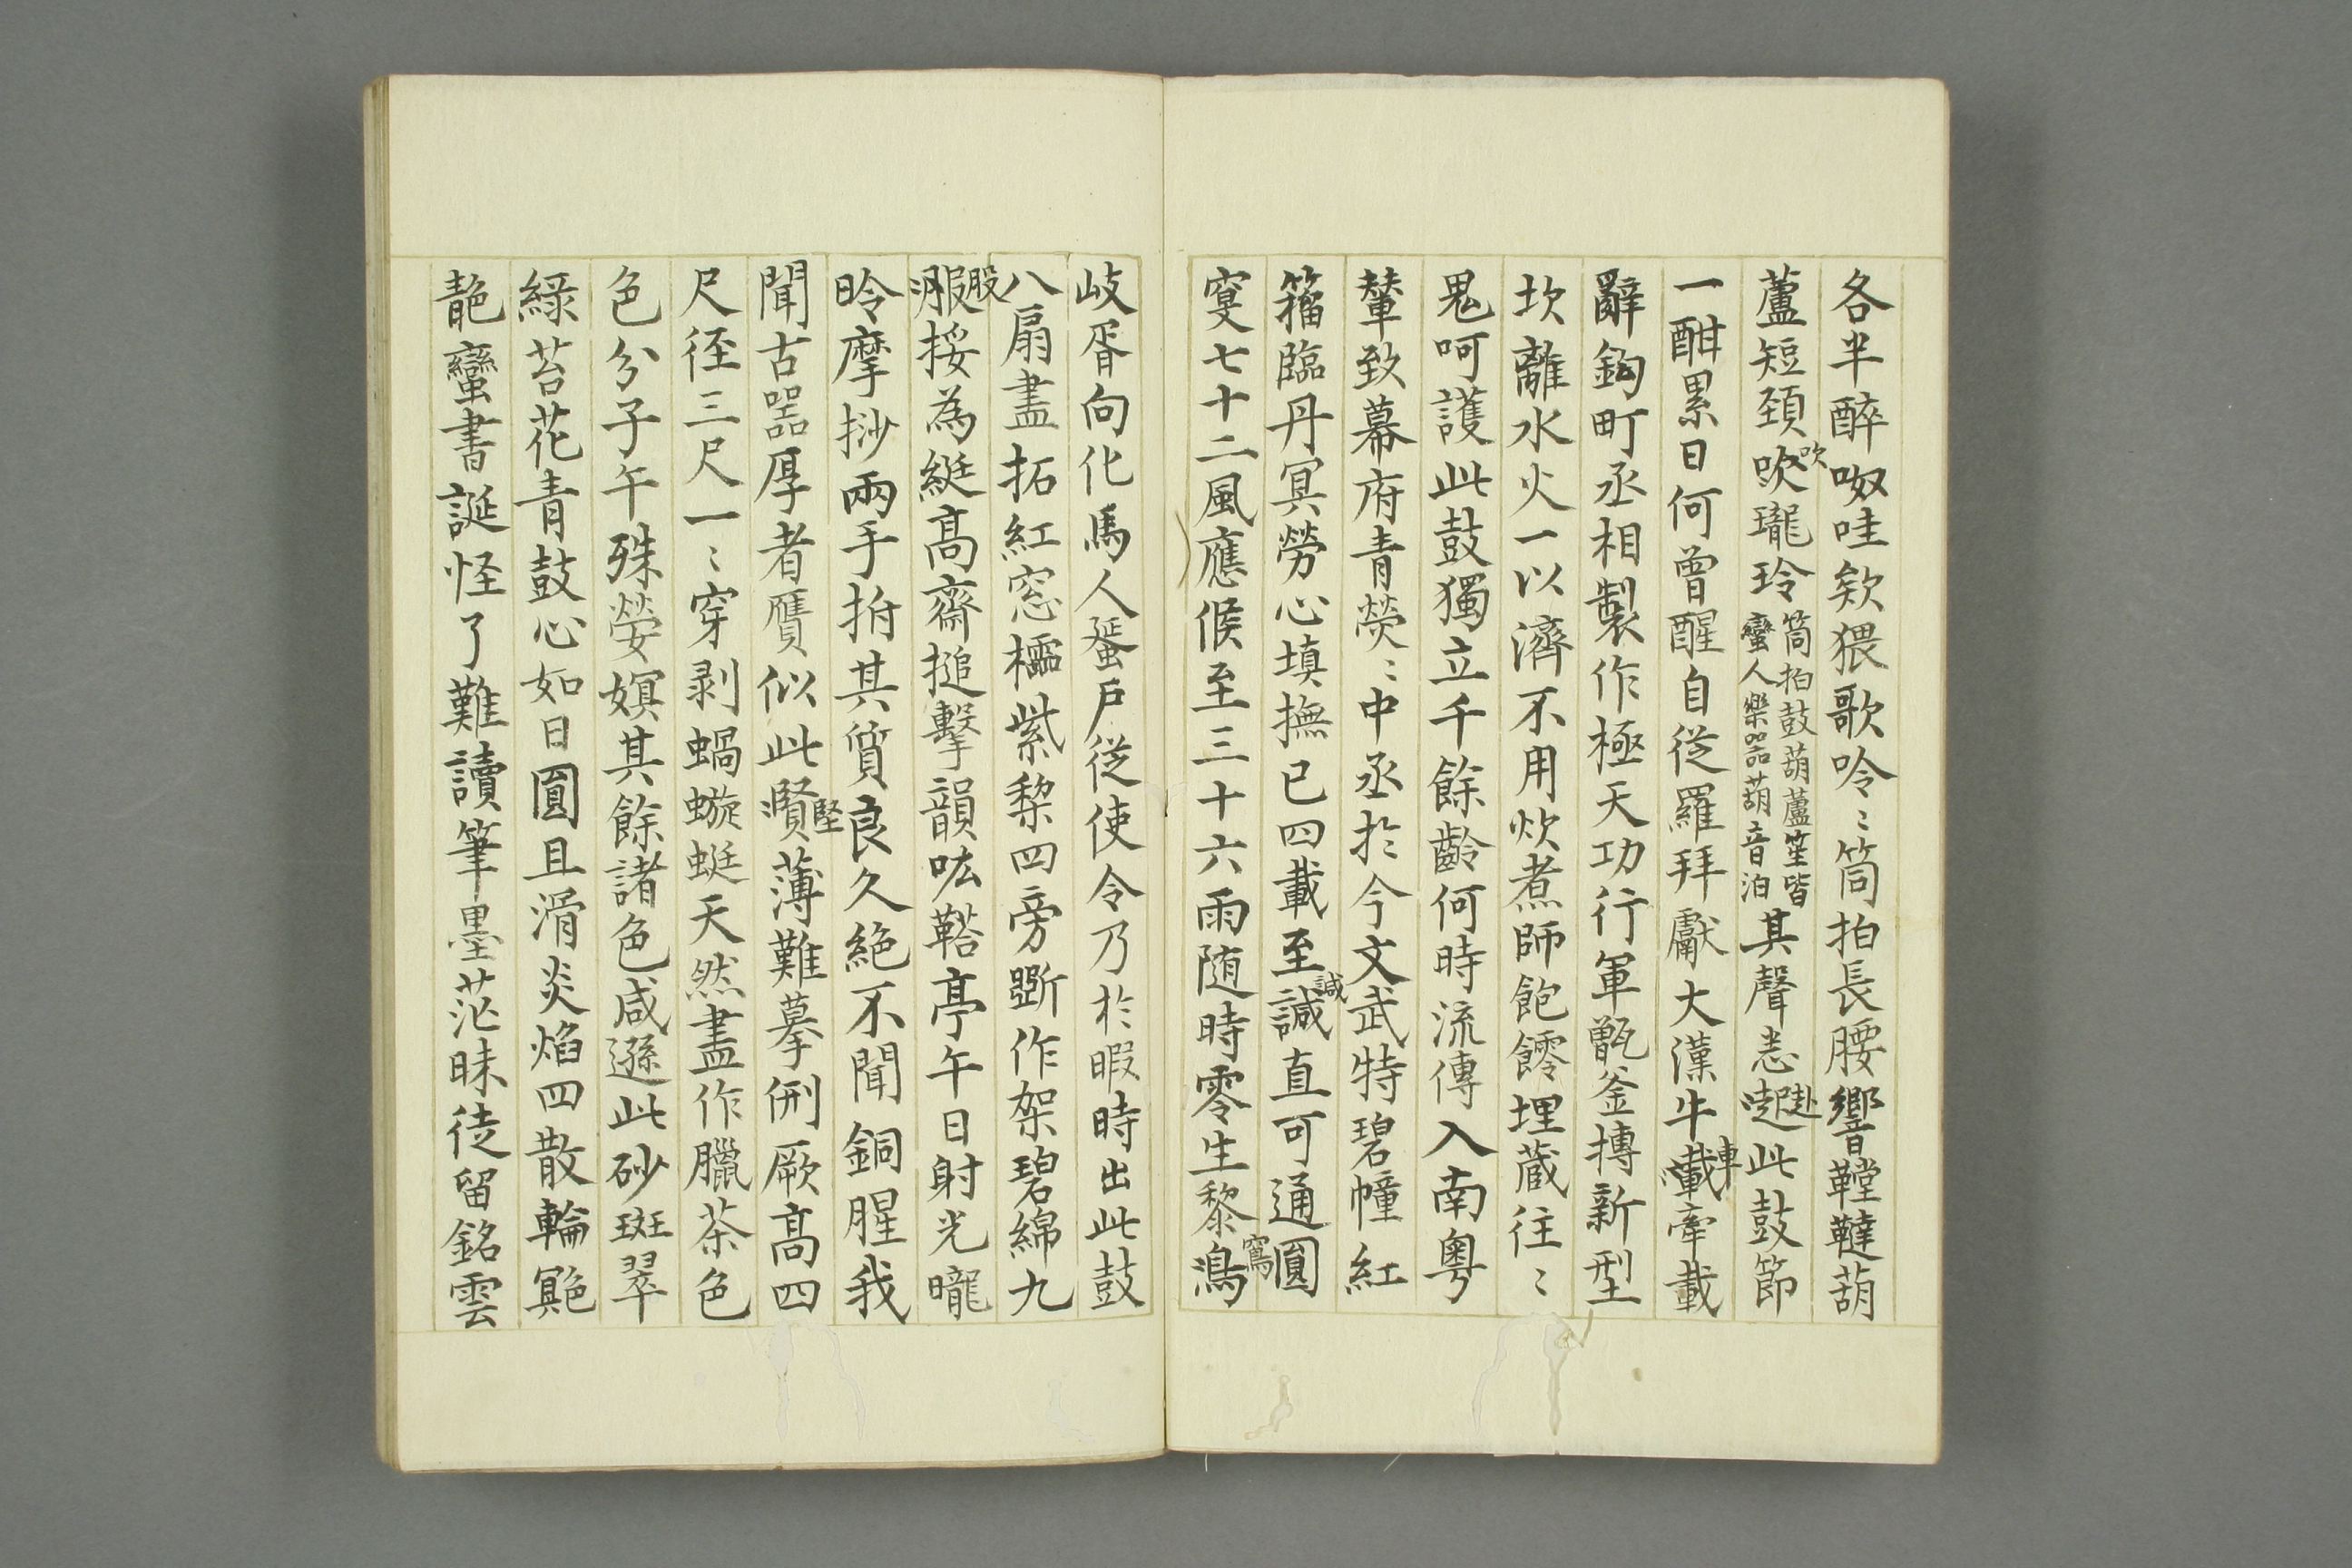 各半醉呶哇欸猥歌呤〻筒拍長腰響鞺鞳葫
蘆短頚吹瓏玲筒拍鼓葫蘆笙皆
蠻人樂器葫音泊其聲悉起此鼓節
一酣累日何曽醒自從羅拜獻大漢牛車牽載
辭鈎町丞相製作極天功行軍甑釜摶新型
坎離水火一以濟不用炊煮師飽饛埋蔵往〻
鬼呵護此鼓獨立千餘齡何時流傳入南粵
輦致幕府青熒〻中丞扵今文武特碧幢紅
籀臨丹冥勞心填撫已四載至諴直可通圓
穹七十二風應候至三十六雨随時零生黎
岐胥向化馬人蜑戶從使令乃扵暇時出此鼓
八扇盡拓紅窓櫺紫黎四旁斵作架碧綿九
股挼為綎髙齋搥擊韻吰鞳亭午日射光曨
昤摩挱兩手拊其質良久絶不聞銅腥我
聞古器厚者贋似此堅薄難摹㓝厥髙四
尺徑三尺一〻穿剥蝸蜁蜓天然盡作臘茶色
色分子午殊嫈嫇其餘諸色咸遜此砂斑翠
綠苔花青鼓心如日圓且滑炎焰四散輪䒌
䒍蠻書誕怪了難讀筆墨茫昧徒留銘雲